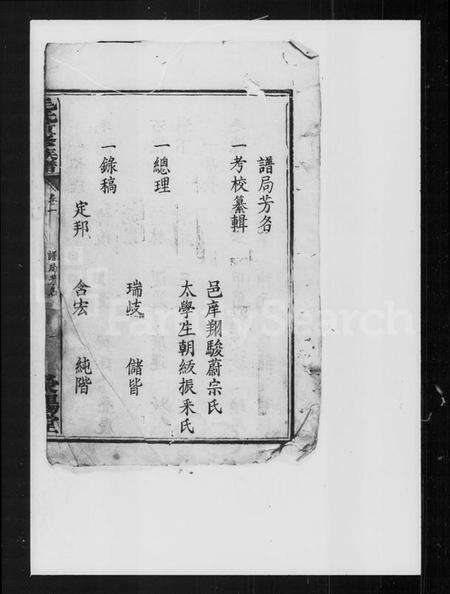 譜局芳名
一考校纂輯
邑庠翔駿蔚宗氏
太學生朝紱振采氏
一總理
瑞岐 儲皆
一錄稿
定邦 含宏 純階
卷一
FamilySearch